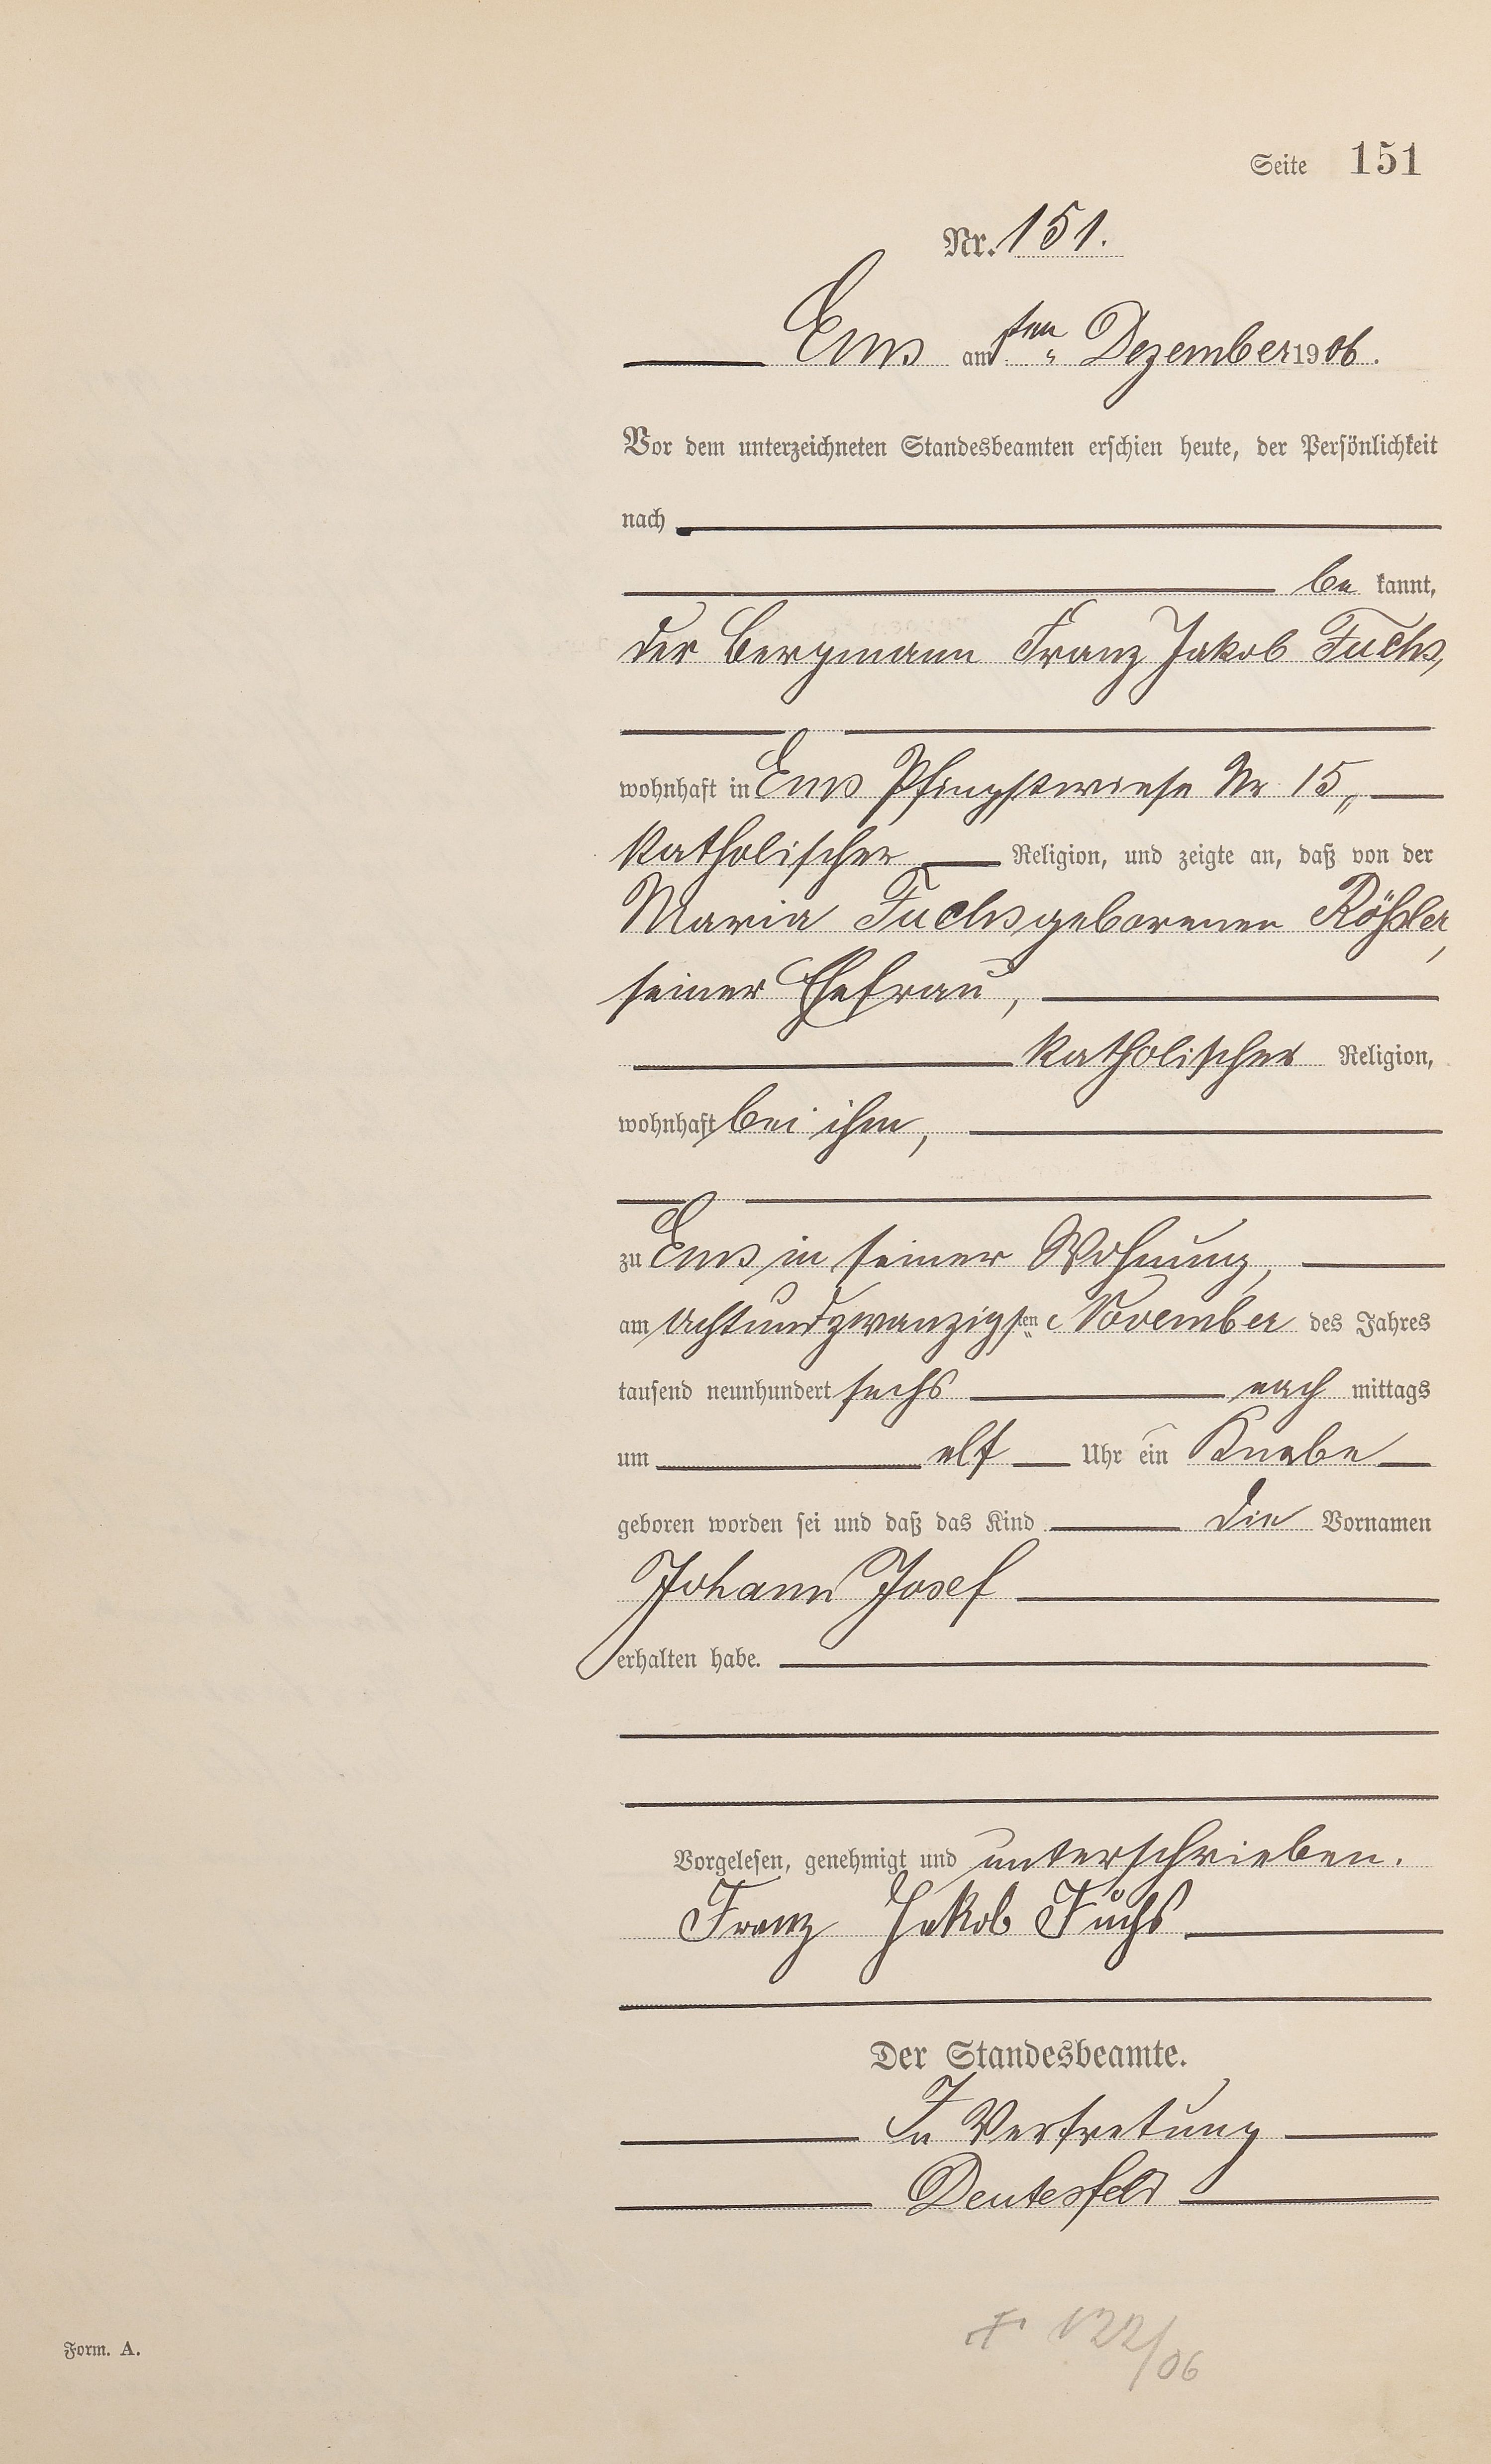 Seite 151
Nr. 151.
Ems am 1ten Dezember 1906.
Vor dem unterzeichneten Standesbeamten erschien heute, der Persönlichkeit
nach
be kannt,
der Bergmann Franz Jakob Fuchs,
wohnhaft in Ems Pfingstwiese Nr 15,
katholischer Religion, und zeigte an, daß von der
Maria Fuchs geborenen Rößler,
seiner Ehefrau,
katholischer Religion,
wohnhaft bei ihm,
zu Ems in seiner Wohnung,
am achtundzwanzigsten November des Jahres
tausend neunhundert sechs nach mittags
um elf Uhr ein Knabe
geboren worden sei und daß das Kind die Vornamen
Johann Josef
erhalten habe.
Vorgelesen, genehmigt und unterschrieben.
Franz Jakob Fuchs
Der Standesbeamte.
In Vertretung
Deutesfeld
122/06
Form. A.